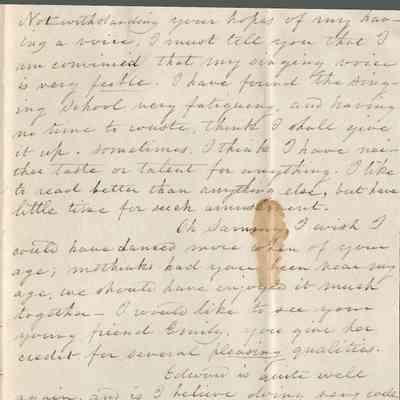 Notwithstanding your hopes of my hav-
ing a voice, I must tell you that I
am convinced that my singing voice
is very feeble. I have found the sing-
ing school very fatiguing, and having
no time to waste, think I shall give
it up. sometimes I think I have nei-
ther taste or talent for anything. I like
to read better than anything else, but have
little time for such amusement.
Oh Sammy, I wish I
could have danced more when of your
age; methinks had you been near my
age, we should have enjoyed it much
together — I would like to see your
young friend Emily, you give her
credit for several pleasing qualities.
Edward is quite well
again, and is I believe doing very well